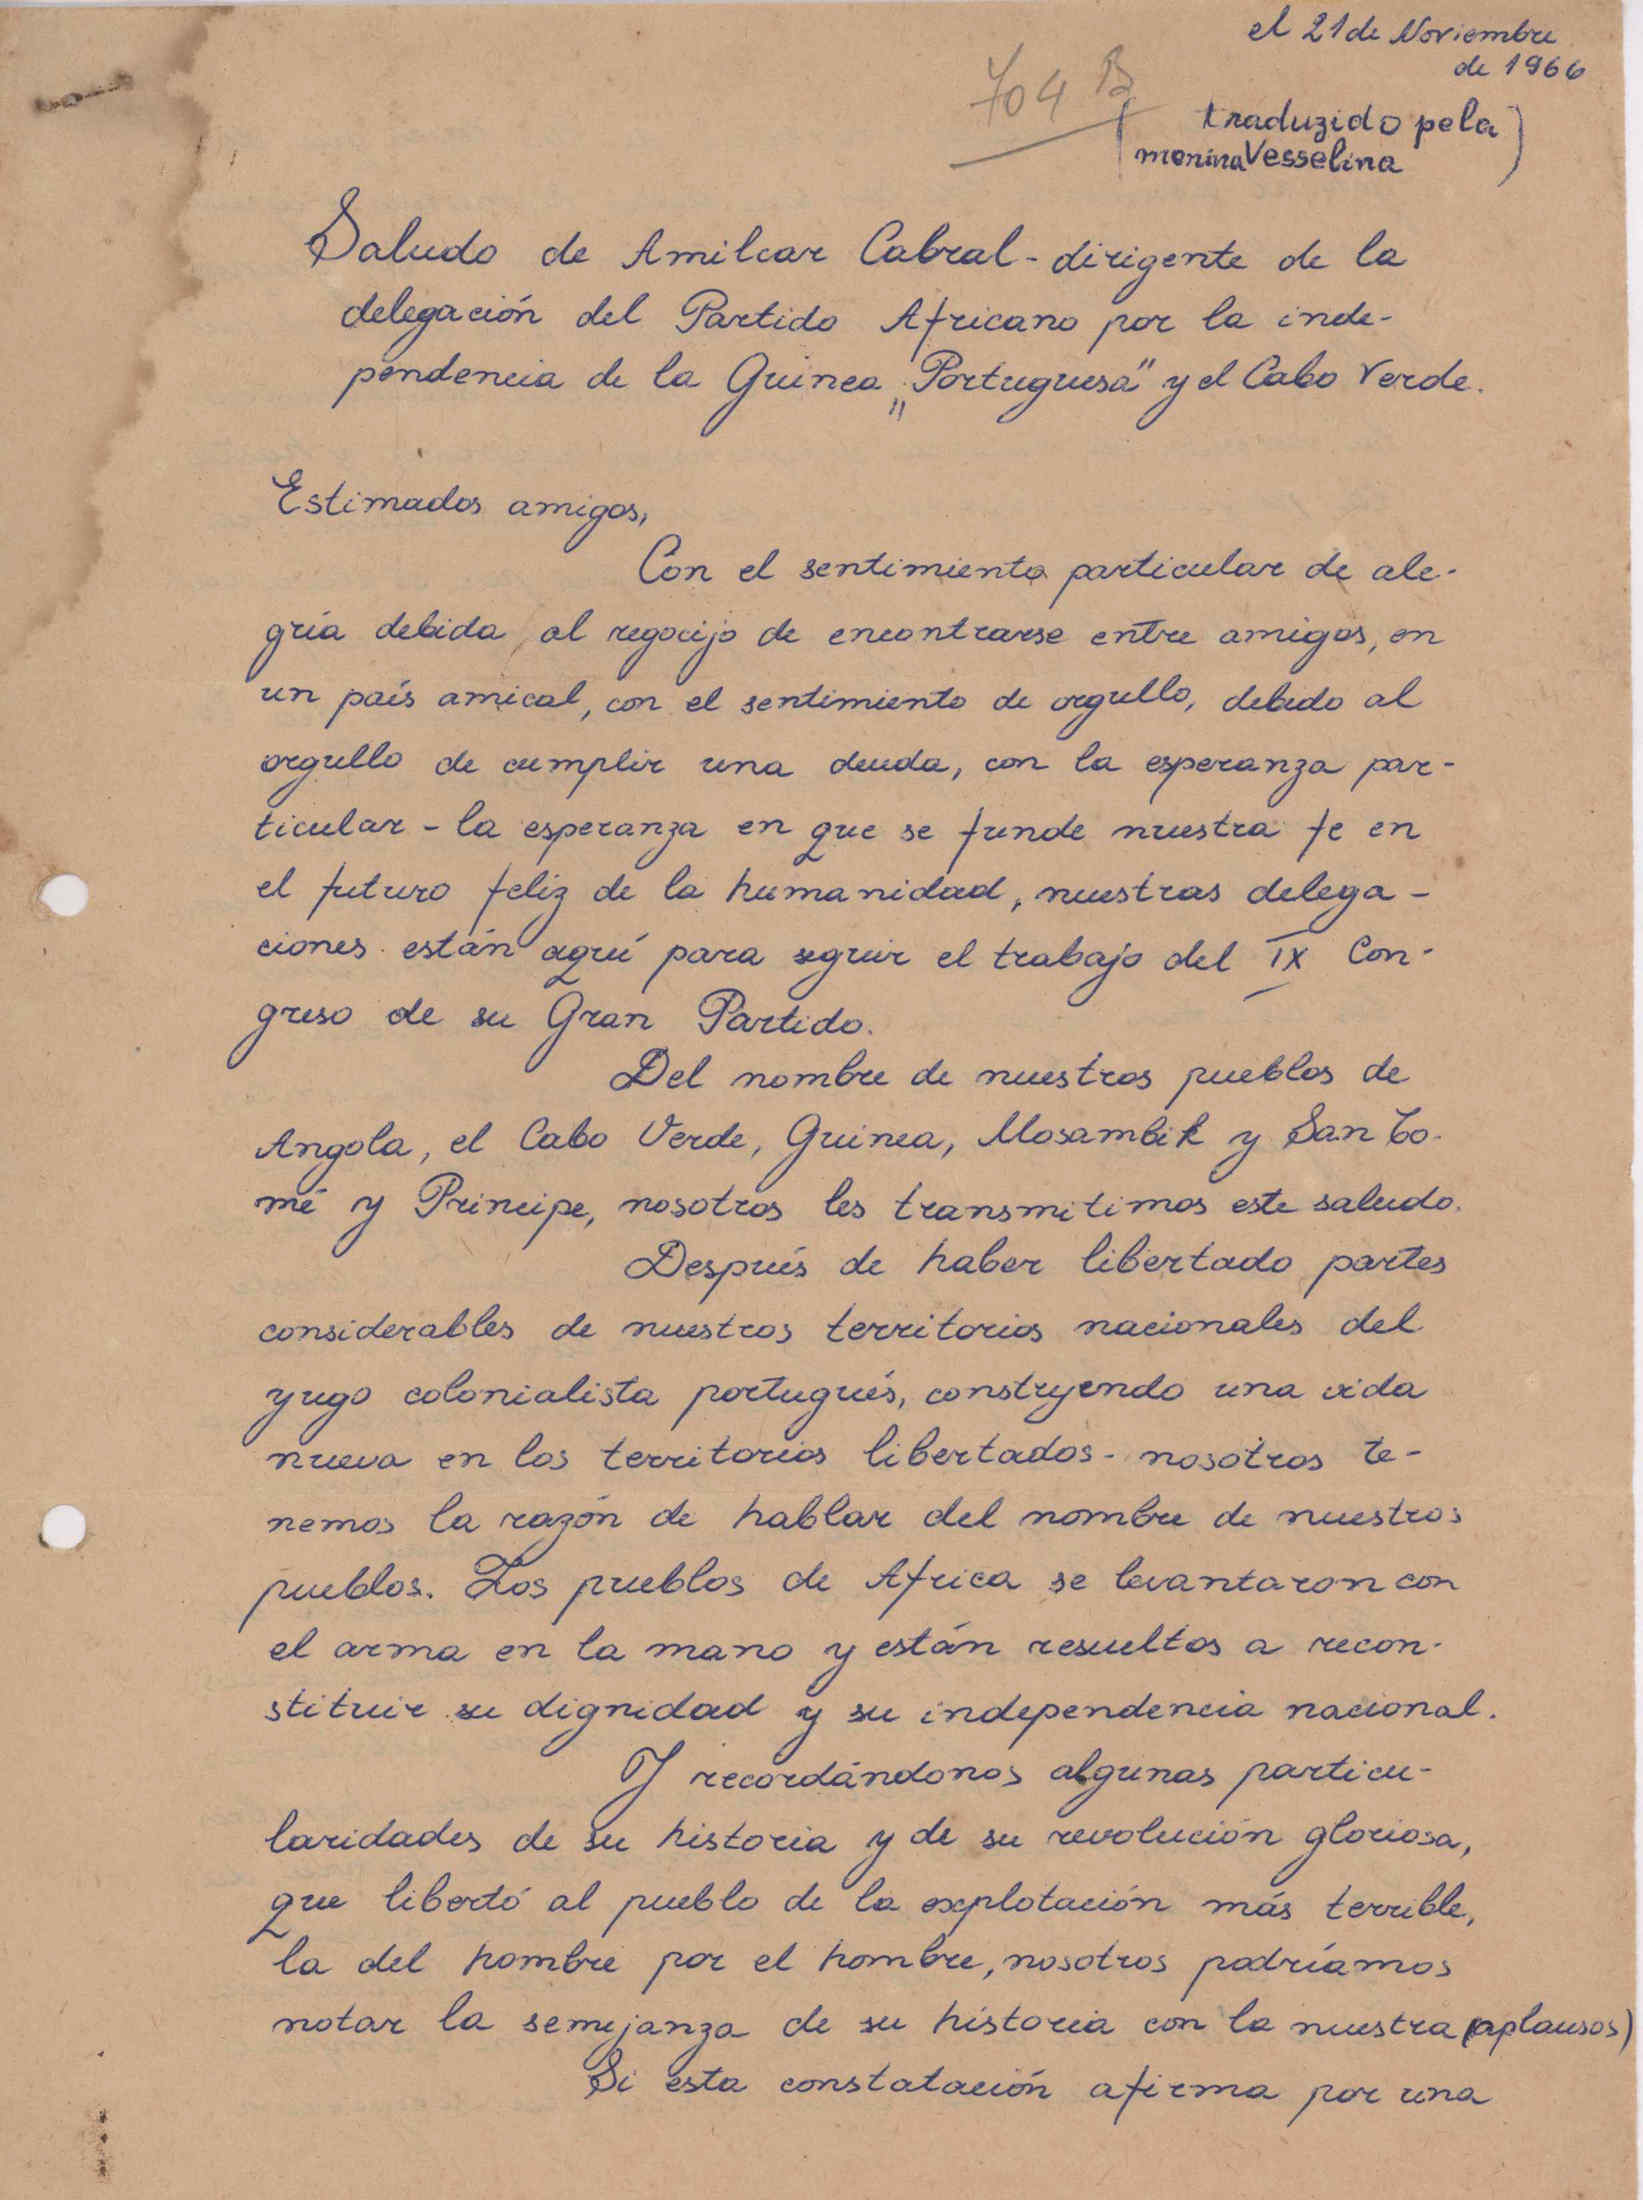 el 21 de Noviembre
de 1966
704 B
(traduzido pela
menina Vesselina)
Saludo de Amilcar Cabral - dirigente de la
delegación del Partido Africano por la inde-
pendencia de la Guinea „Portuguesa" y el Cabo Verde.
Estimados amigos,
Con el sentimiento particular de ale-
gría debida al regocijo de encontrarse entre amigos, en
un país amical, con el sentimiento de orgullo, debido al
orgullo de cumplir una deuda, con la esperanza par-
ticular - la esperanza en que se funde nuestra fe en
el futuro feliz de la humanidad, nuestras delega-
ciones están aquí para seguir el trabajo del IX Con-
greso de su Gran Partido.
Del nombre de nuestros pueblos de
Angola, el Cabo Verde, Guinea, Mosambik y San To-
mé y Principe, nosotros les transmitimos este saludo.
Después de haber libertado partes
considerables de nuestros territorios nacionales del
yugo colonialista portugués, construyendo una vida
nueva en los territorios libertados - nosotros te-
nemos la razón de hablar del nombre de nuestros
pueblos. Los pueblos de Africa se levantaron con
el arma en la mano y están resueltos a recon-
stituir su dignidad y su independencia nacional.
Y recordándonos algunas particu-
laridades de su historia y de su revolución gloriosa,
que libertó al pueblo de la explotación más terrible,
la del hombre por el hombre, nosotros podríamos
notar la semejanza de su historia con la nuestra (aplausos)
Si esta constatación afirma por una